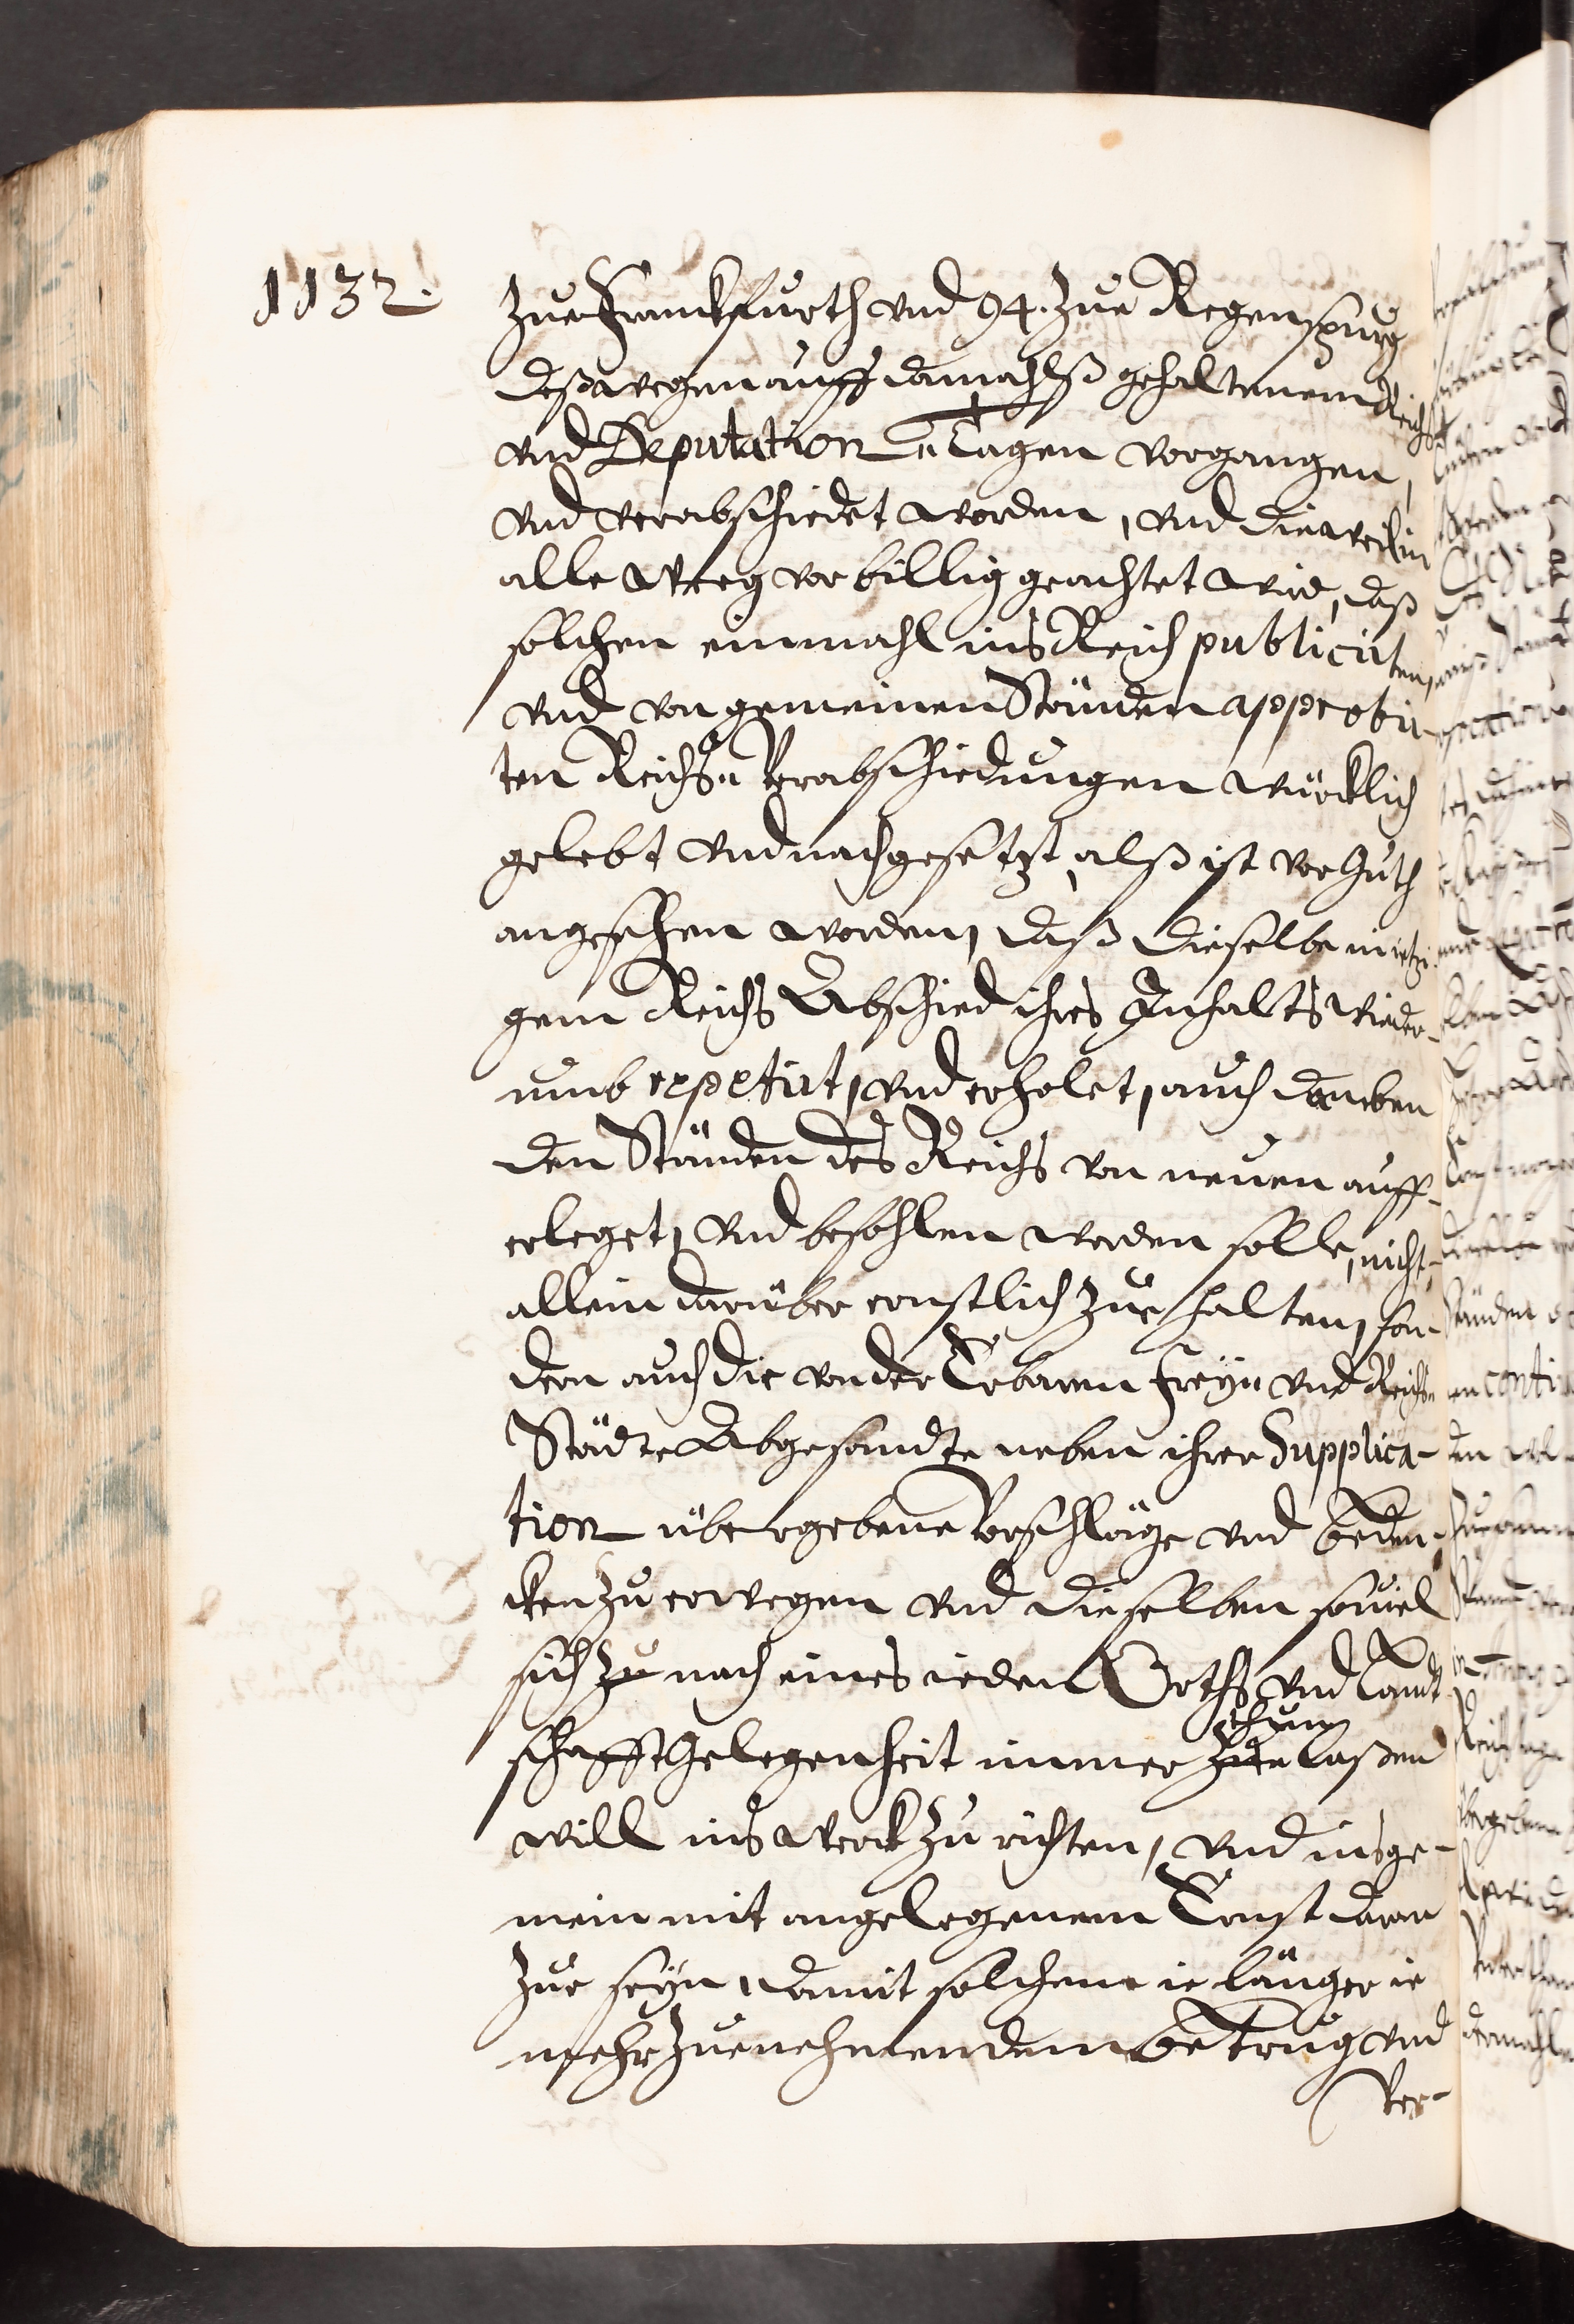 1132.
zue Franckfurth vnd 94. zue Regenspurg
deßwegen auff damahlß gehaltenem Reichs
vnd Deputation Tagen vorgangen,
vnd verabschiedet worden, vnd dieweil in
alle Weeg vor billig geachtet wird, daß
solchen einmahl ins Reich publicirten,
vnd von gemeinen Ständen approbir-
ten Reichs Verabschiedungen würcklich
gelebt vnd nachgesetzt, alß ist vor Guth
angesehen worden, daß dieselbe in ietzi-
gem Reichs Abschied ihres Inhalts wieder-
umb repetirt, vnd erholet, auch daneben
den Ständen des Reichs von neuen auff-
erleget, vnd befohlen werden solle, nicht
allein darüber ernstlich zue halten, son-
dern auch die von der Erbaren Frey- vnd Reichs-
Städte Abgesandte neben ihrer Supplica-
tion übergebene Vorschläge vnd beden-
cken zu erwegen vnd dieselben souiel
sich zu nach eines ieden Orths vnd Landt-
schafft Gelegenheit immer thun
zue laßen
will ins Werck zu richten, vnd insge-
mein mit angelegenem Ernst daran
zue seyn, damit solchem ie länger ie
mehr zuenehmendem betrug vnd
Ver-